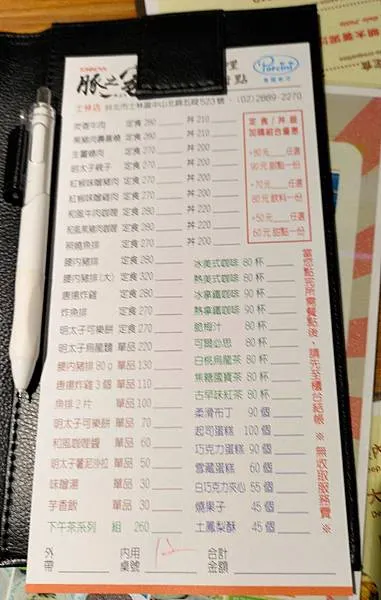 豚之
點
士林店 台北市士林區中山北路五段523號 (02)2889-2270
炭香牛肉 定食 280 丼 210
黑豬肉壽喜燒 定食 280 丼 210
生薑燒肉 定食 270 丼 200
明太子親子 定食 270 丼 200
紅椒味噌豬肉 定食 270 丼 200
紅椒味噌雞肉 定食 270 丼 200
和風牛肉咖哩 定食 280 丼 220
和風黑豬咖哩 定食 270 丼 200
照燒魚排 定食 270 丼 200
定食/丼飯
加購組合優惠
+80元 任選
90元 甜點一份
+70元 任選
80元 飲料一份
+50元 任選
60元 甜點一份
腰內豬排 定食 280
腰內豬排(大) 定食 320
唐揚炸雞 定食 280
炸魚排 定食 270
明太子可樂餅 定食 270
明太子烏龍麵 單品 220
腰內豬排80g 單品 130
唐揚炸雞3個 單品 110
魚排2片 單品 100
明太子可樂餅 單品 70
和風咖哩醬 單品 60
明太子薯泥沙拉 單品 50
味噌湯 單品 30
芋香飯 單品 30
下午茶系列 組 260
冰美式咖啡 80 杯
熱美式咖啡 80 杯
冰拿鐵咖啡 90 杯
熱拿鐵咖啡 90 杯
脆梅汁 80 杯
可爾必思 80 杯
白桃烏龍茶 80 杯
焦糖國寶茶 80 杯
古早味紅茶 80 杯
柔滑布丁 90 個
起司蛋糕 100 個
巧克力蛋糕 90 個
雪藏蛋糕 60 個
白巧克力夾心 55 個
燒果子 45 個
土鳳梨酥 45 個
當您點完所需餐點後,請先至櫃台結帳 ※ 無收取服務費 ※
外帶 內用桌號 合計金額